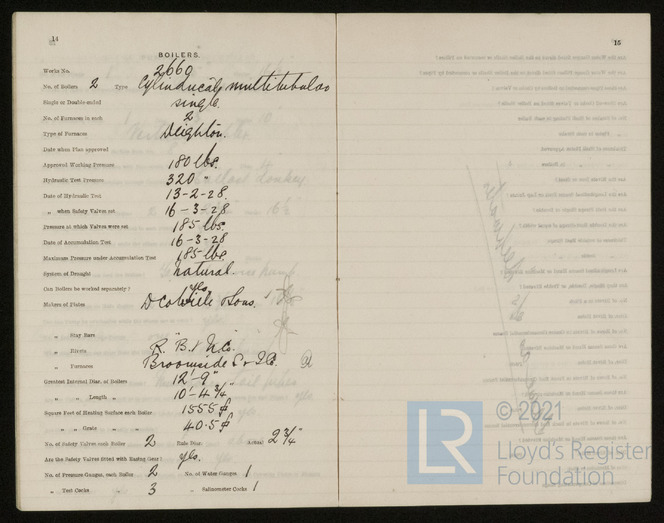 14
BOILERS.
Works No. 2660
No. of Boilers 2 Type Cylindrical multitubular
Single or Double-ended single.
No. of Furnaces in each 2
Type of Furnaces Deighton.
Date when Plan approved
Approved Working Pressure 180 lbs.
Hydraulic Test Pressure 320 "
Date of Hydraulic Test 13-2-28.
" when Safety Valves set 16-3-28
Pressure at which Valves were set 185 lbs.
Date of Accumulation Test 16-3-28
Maximum Pressure under Accumulation Test 185 lbs.
System of Draught natural.
Can Boilers be worked separately? yes.
Makers of Plates D Colville & Sons.
" Stay Bars "
" Rivets R. B. & N. Co.
" Furnaces
Greatest Internal Diam. of Boilers 12'-9"
" " Length " 10'-4 3/4"
Square Feet of Heating Surface each Boiler 1555
" " Grate " " 40.5
No. of Safety Valves each Boiler 2 Rule Diam. Actual 2 3/4"
Are the Safety Valves fitted with Easing Gear? yes.
No. of Pressure Gauges, each Boiler 2 No. of Water Gauges 1
" Test Cocks " 3 " Salinometer Cocks 1
15
© 2021
LR
Lloyd's Register
Foundation